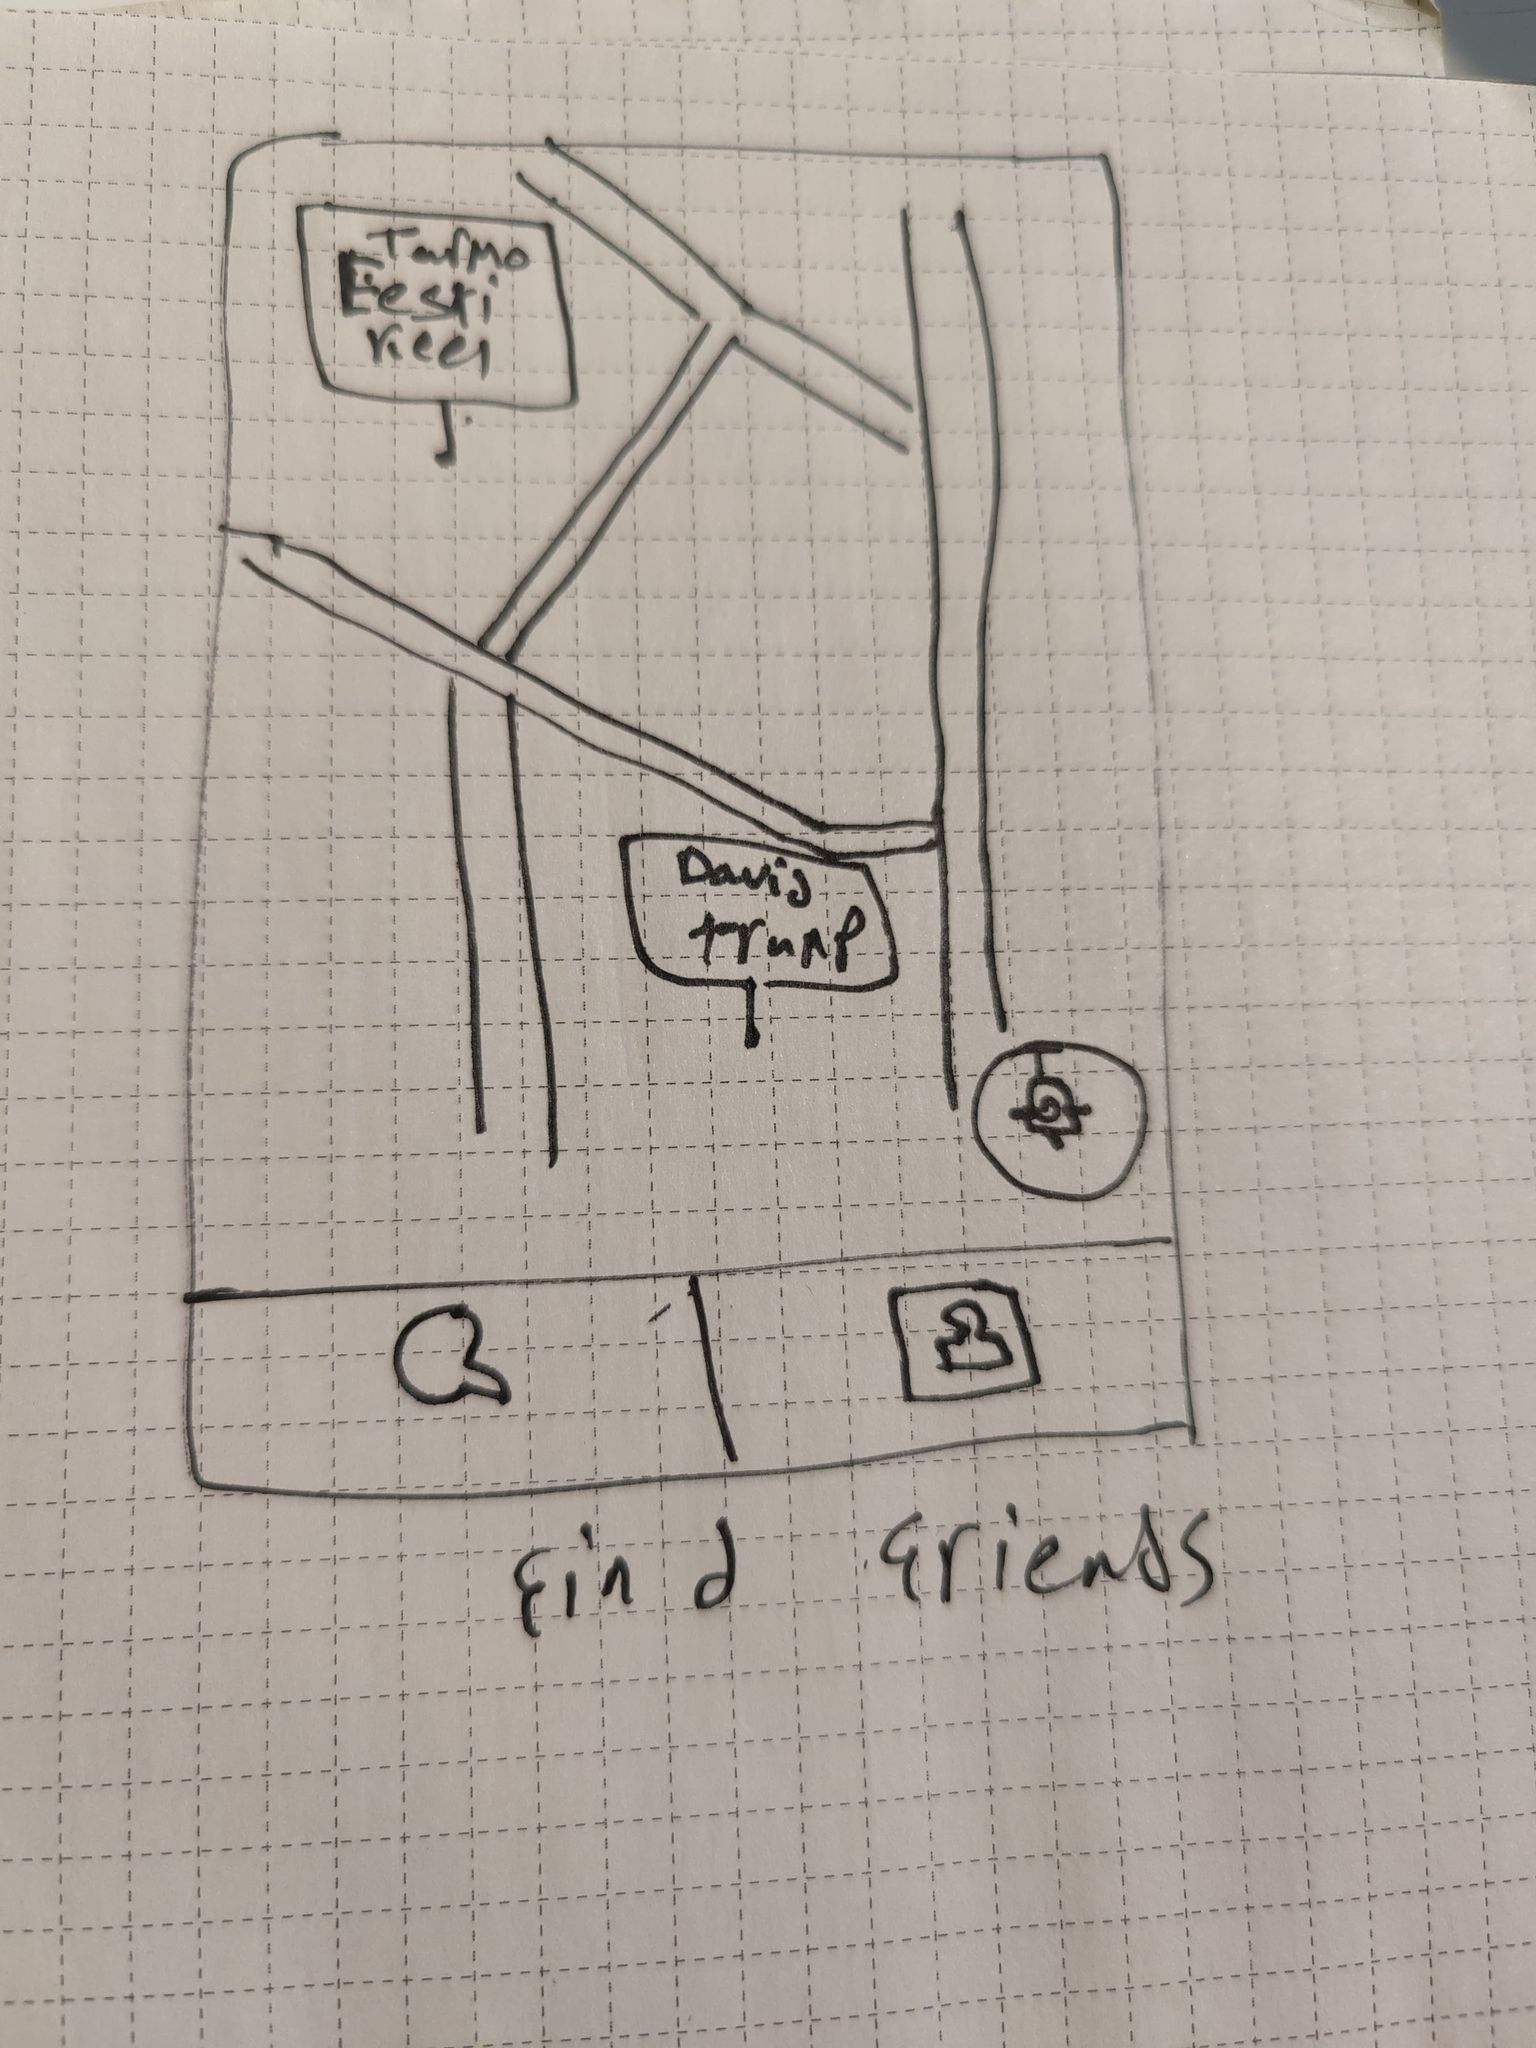 Tarmo
Eesti
keel
David
trump
find friends